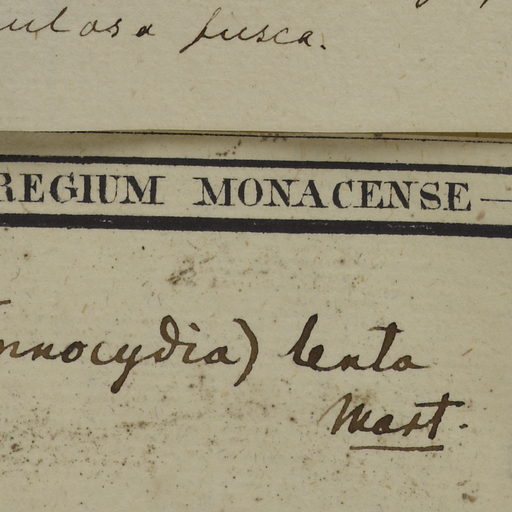 fusca.
REGIUM MONACENSE —
nnocydia) lenta
Mart.